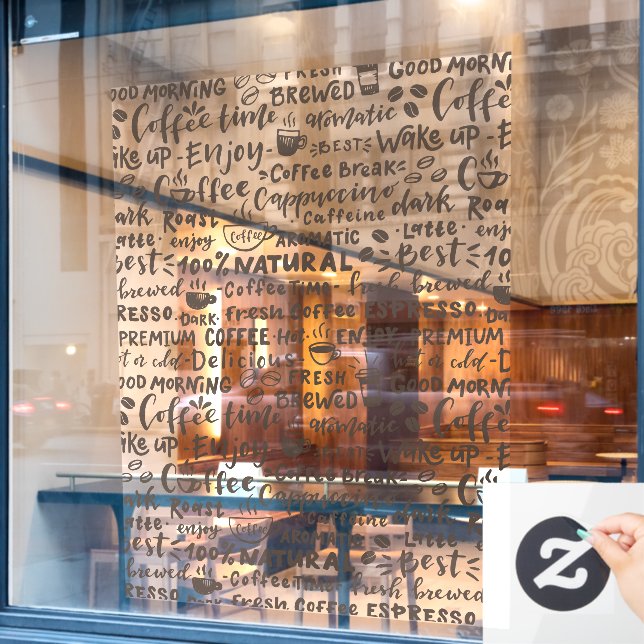 GOOD MORNING FRESH BREWED GOOD MORNING
Coffee time aromatic Coffee
Wake up - Enjoy - BEST Wake up - E
Coffee Break
Coffee Cappuccino dark C
dark Roast Caffeine Roa
Latte · enjoy Coffee AROMATIC · Latte · enj
Best 100% NATURAL Best 100
brewed · Coffee TIME - fresh brewed
PRESSO · DARK · fresh Coffee ESPRESSO · DAR
PREMIUM COFFEE · Hot · ENJOY PREMIUM
hot or cold - Delicious hot or cold - D
GOOD MORNING FRESH BREWED GOOD MORNING
Coffee time aromatic Coffee
Wake up - Enjoy Wake up - E
Coffee Break
Coffee Cappuccino dark C
dark Roast Caffeine Roa
Latte · enjoy Coffee AROMATIC · Latte
Best 100% NATURAL Best
brewed · Coffee TIME - fresh brewed
PRESSO · DARK · fresh Coffee ESPRESSO
Z